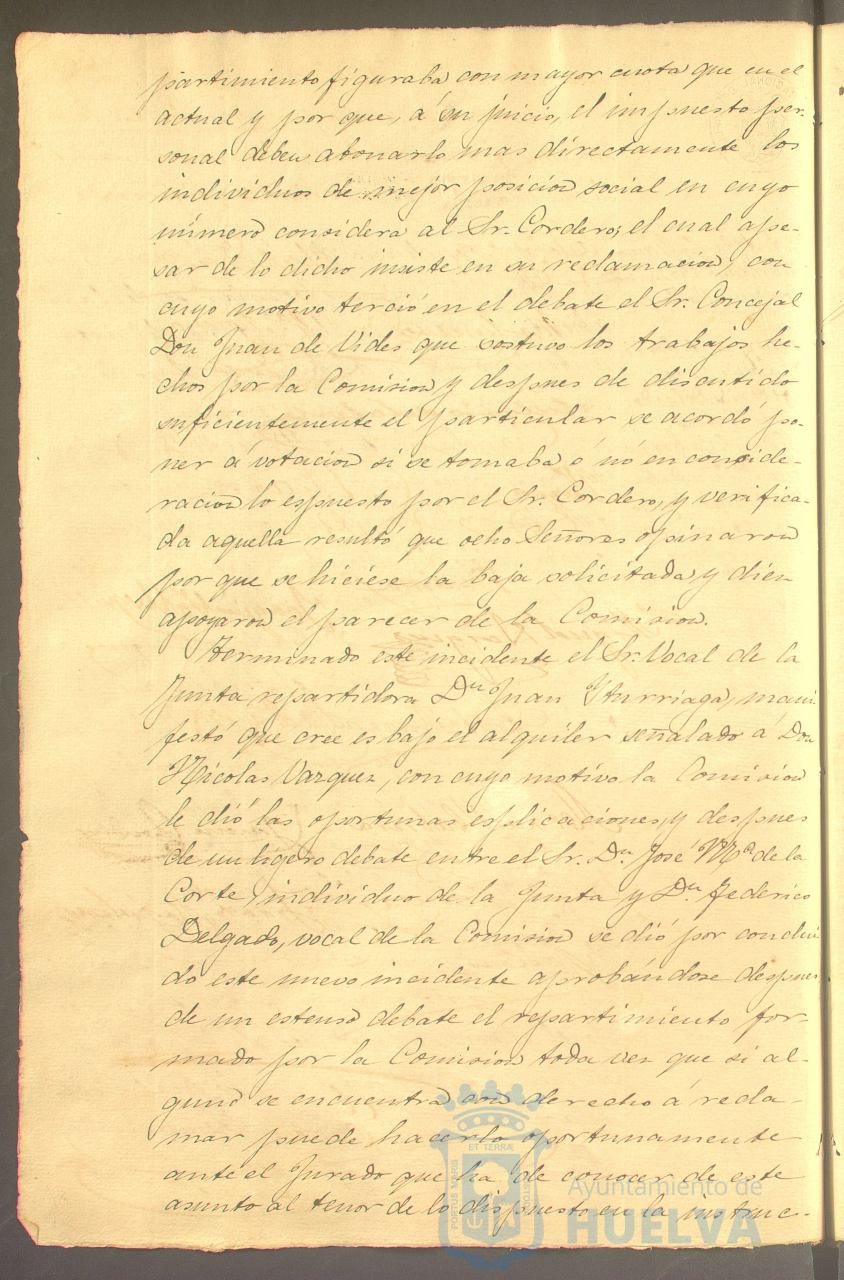 partimiento figuraba con mayor cuota que en el
actual y por que, á su juicio, el impuesto per-
sonal deben abonarlo mas directamente los
individuos de mejor posicion social en cuyo
número considera al Sr. Cordero; el cual ape-
sar de lo dicho insiste en su reclamacion, con
cuyo motivo terció en el debate el Sr. Concejal
Don Juan de Vides que sostuvo los trabajos he-
chos por la Comision y despues de discutido
suficientemente el particular se acordó po-
ner á votacion si se tomaba ó nó en conside-
racion lo espuesto por el Sr. Cordero, y verifica-
da aquella resultó que ocho Señores opinaron
por que se hiciese la baja solicitada y diez
apoyaron el parecer de la Comision.
Terminado este incidente el Sr. Vocal de la
Junta repartidora Dn Juan Yturriaga, mani
festó que cree es bajo el alquiler señalado á Don
Nicolas Vazquez, con cuyo motivo la Comision
le dió las oportunas esplicaciones, y despues
de un ligero debate entre el Sr. Dn. José Mª de la
Corte, individuo de la Junta y Dn. Federico
Delgado, vocal de la Comision se dió por conclui
do este nuevo incidente aprobándose despues
de un estenso debate el repartimiento for-
mado por la Comision toda vez que si al-
guno se encuentra con derecho á recla-
mar puede hacerlo oportunamente
ante el Jurado que ha de conocer de este
asunto al tenor de lo dispuesto en la instruc-
PORTUS MARIS ET TERRAE CUSTODIA
Ayuntamiento de
HUELVA